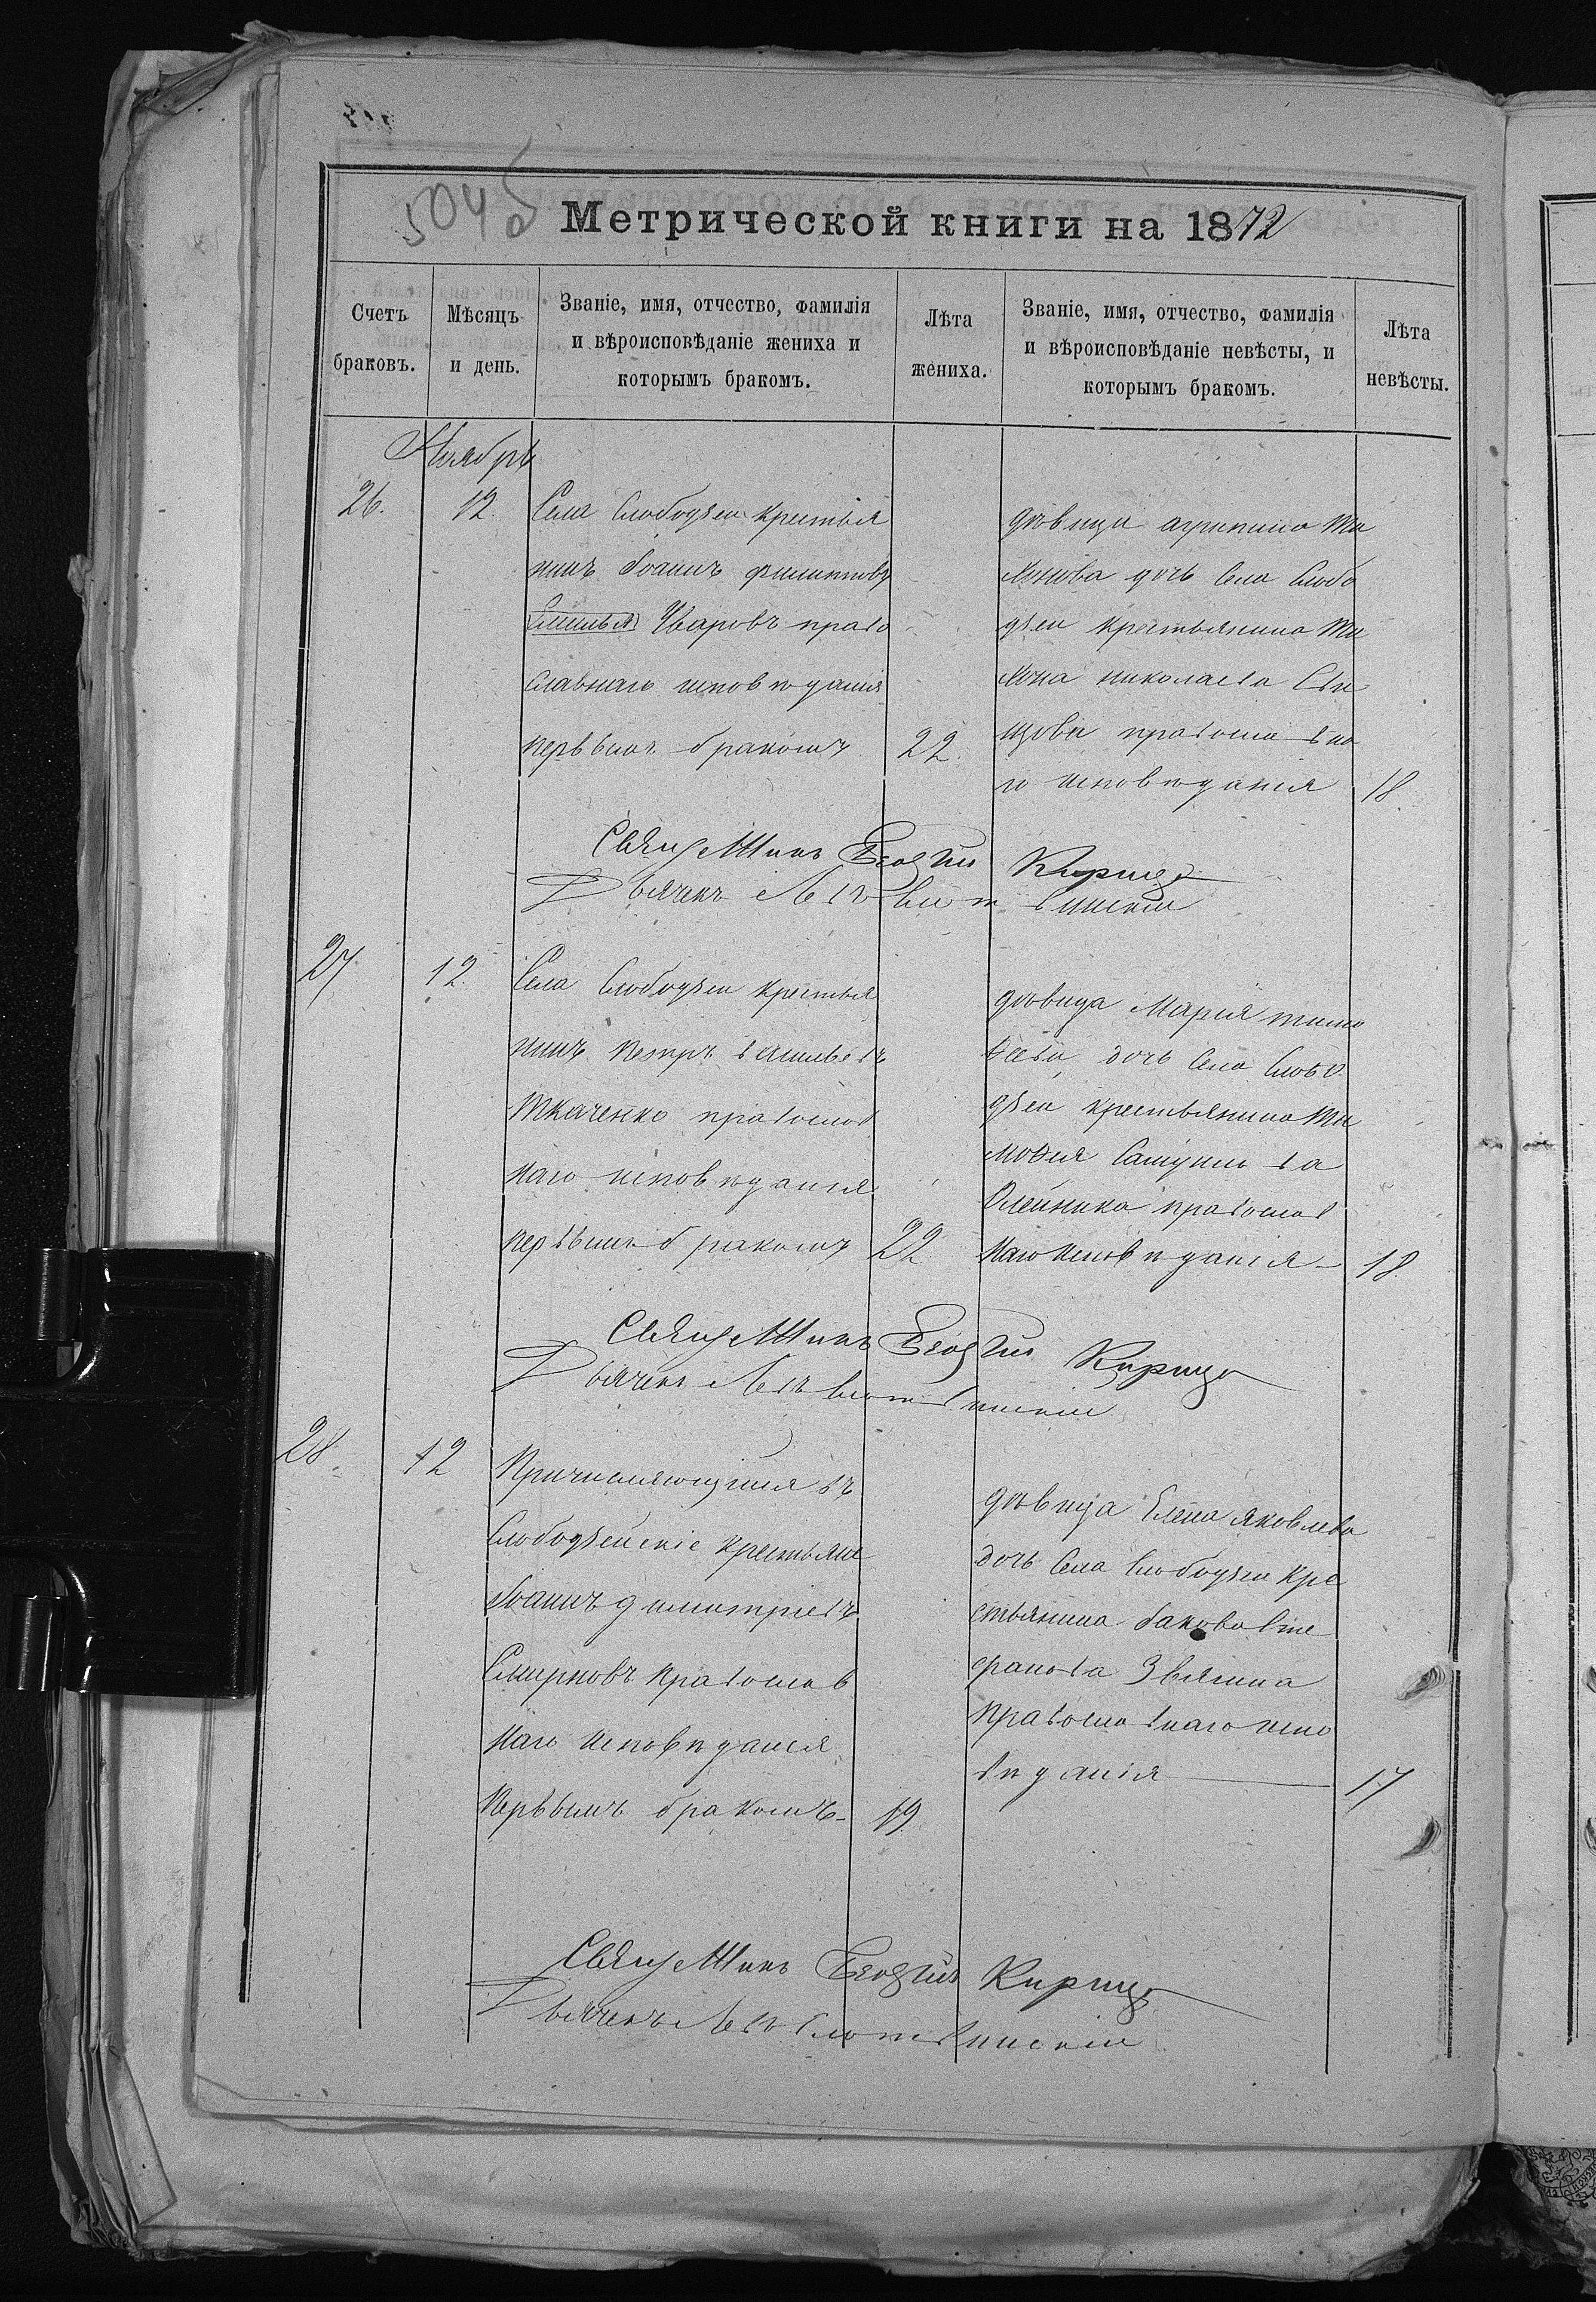 504 б
Метрической книги на 1872
Счетъ браковъ.
Мѣсяцъ и день.
Званіе, имя, отчество, фамилія и вѣроисповѣданіе жениха и которымъ бракомъ.
Лѣта жениха.
Званіе, имя, отчество, фамилія и вѣроисповѣданіе невѣсты, и которымъ бракомъ.
Лѣта невѣсты.
Ноябрь
26.
12.
Села Слободзеи крестья
нинъ Іоаннъ филиповъ
Уваровъ право
славнаго исповѣданія
первымъ бракомъ
22.
дѣвица агрипина Ти
хонова дочь Села Слобо
дзеи крестьянина Ти
хона николаева
православна
го исповѣданія
18.
Священникъ Георгій
Дьячекъ
27
12.
Села Слободзеи крестья
нинъ петръ васильевъ
Ткаченко православ
наго исповѣданія
первымъ бракомъ
22
дѣвица Марія тимо
ѳеева дочь Села Слобо
дзеи крестьянина Ти
моѳея Самуила
Олейника православ
наго исповѣданія
18.
Священникъ Георгій
Дьячекъ
28.
12
Причисляющійся въ
Слободзейскіе крестьяне
Іоаннъ димитріевъ
Смирновъ православ
наго исповѣданія
первымъ бракомъ
19.
дѣвица Елена яковлева
дочь Села Слободзеи кре
стьянина Іакова Сте
фанова Звягина
православнаго испо
вѣданія
17
Священникъ Георгій
Дьячекъ